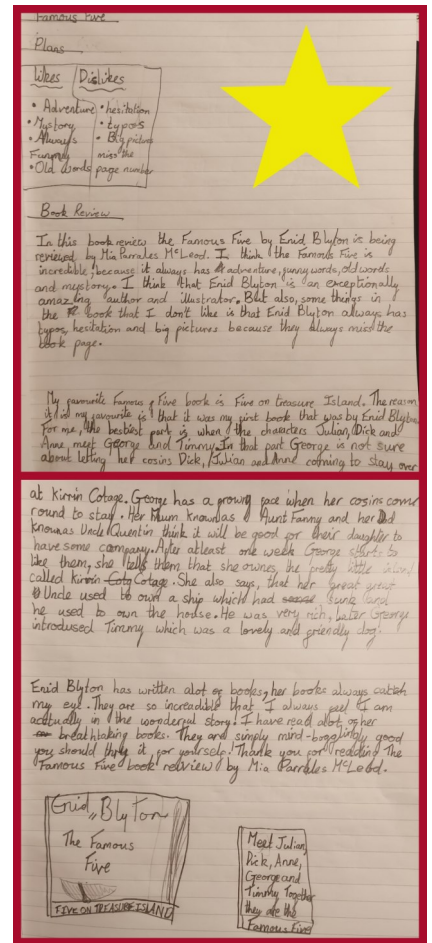 Famous Five
Plans
Likes Dislikes
• Adventure • hesitation
• Mystory • typos
• Always • Big pictures
Funnny miss the
• Old words page number
Book Review
In this book review the Famous Five by Enid Blyton is being
reviewed by Mia Parrales McLeod. I think the Famous Five is
incredible, because it always has adventure, funny words, old words
and mystory. I think that Enid Blyton is an exceptionally
amazing author and illustrator. But also, some things in
the book that I don't like is that Enid Blyton always has
typos, hesitation and big pictures because they always miss the
book page.
My favourite Famous Five book is Five on treasure Island. The reason
it is my favourite is that it was my first book that was by Enid Blyton
For me, the bestiest part is when the characters Julian, Dick and
Anne, meet George and Timmy. In that part George is not sure
about letting her cosins Dick, Julian and Anne coming to stay over
at kirrin Cotage. George has a frowny face when her cosins come
round to stay. Her Mum known as Aunt Fanny and her Dad
known as Uncle Quentin think it will be good for their daughter to
have some company. After atleast one week George starts to
like them, she tells them that she ownes, the pretty little island
called kirrin Cotage. She also says, that her great great
Uncle used to own a ship which had sunk and
he used to own the house. He was very rich, Later George
introdused Timmy which was a lovely and friendly dog.
Enid Blyton has written alot of books, her books always catch
my eye. They are so increadible that I always feel I am
actually in the wonderful story! I have read alot of her
breathtaking books. They are simply mind-bogglingly good
you should try it for yourself! Thank you for reading The
Famous Five book review by Mia Parrales McLeod.
Enid Blyton
The Famous
Five
FIVE ON TREASURE ISLAND
Meet Julian,
Dick, Anne,
George and
Timmy Together
they are the
Famous Five